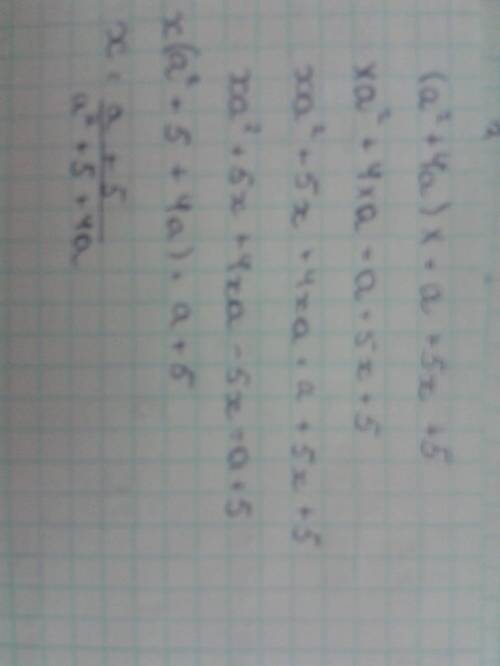 (a² + 4a) x = a + 5x + 5
xa² + 4xa = a + 5x + 5
xa² + 5x + 4xa = a + 5x + 5
xa² + 5x + 4xa - 5x = a + 5
x(a² + 5 + 4a) = a + 5
x = a + 5 / a² + 5 + 4a